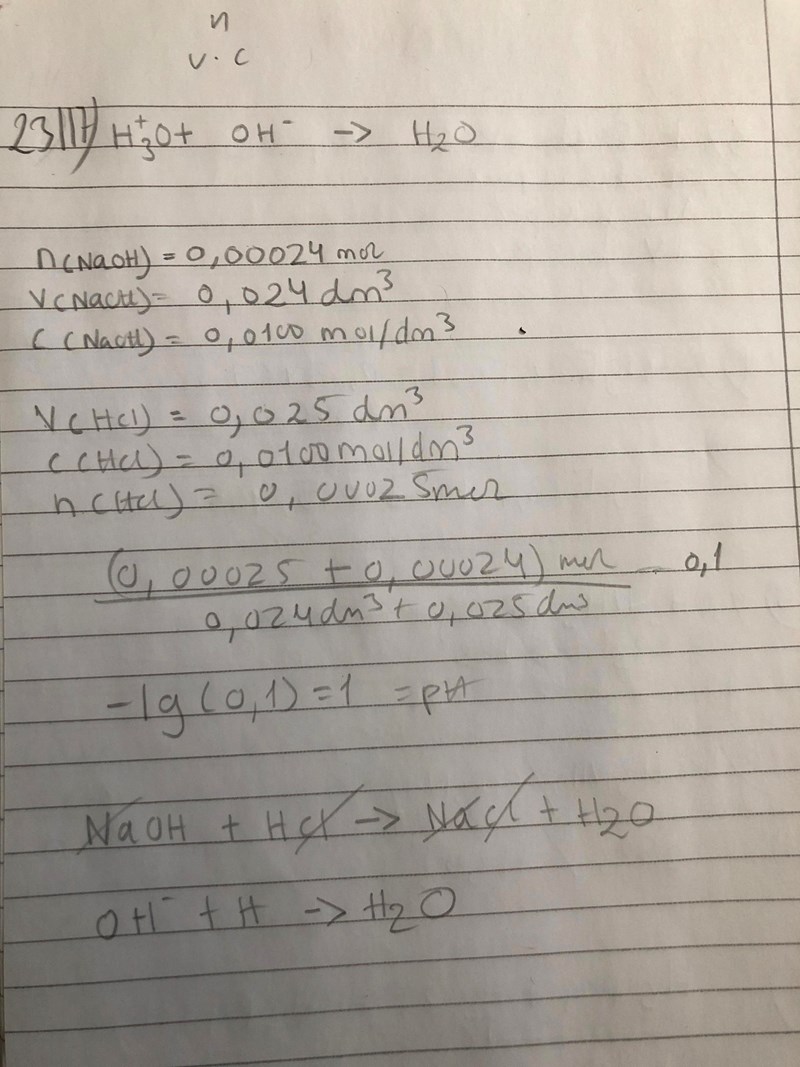 n
v. c
23117) H₃⁺O+ OH⁻ -> H₂O
n(NaOH) = 0,00024 mol
V(NaOH)= 0,024 dm³
C (NaOH) = 0,0100 mol/dm³
V(HCl) = 0,025 dm³
C(HCl) = 0,0100mol/dm³
n(HCl) = 0,00025mol
(0,00025 + 0,00024) mol = 0,1
0,024dm³ + 0,025dm³
-lg (0,1) = 1 = pH
NaOH + HCl -> NaCl + H₂O
OH⁻ + H -> H₂O